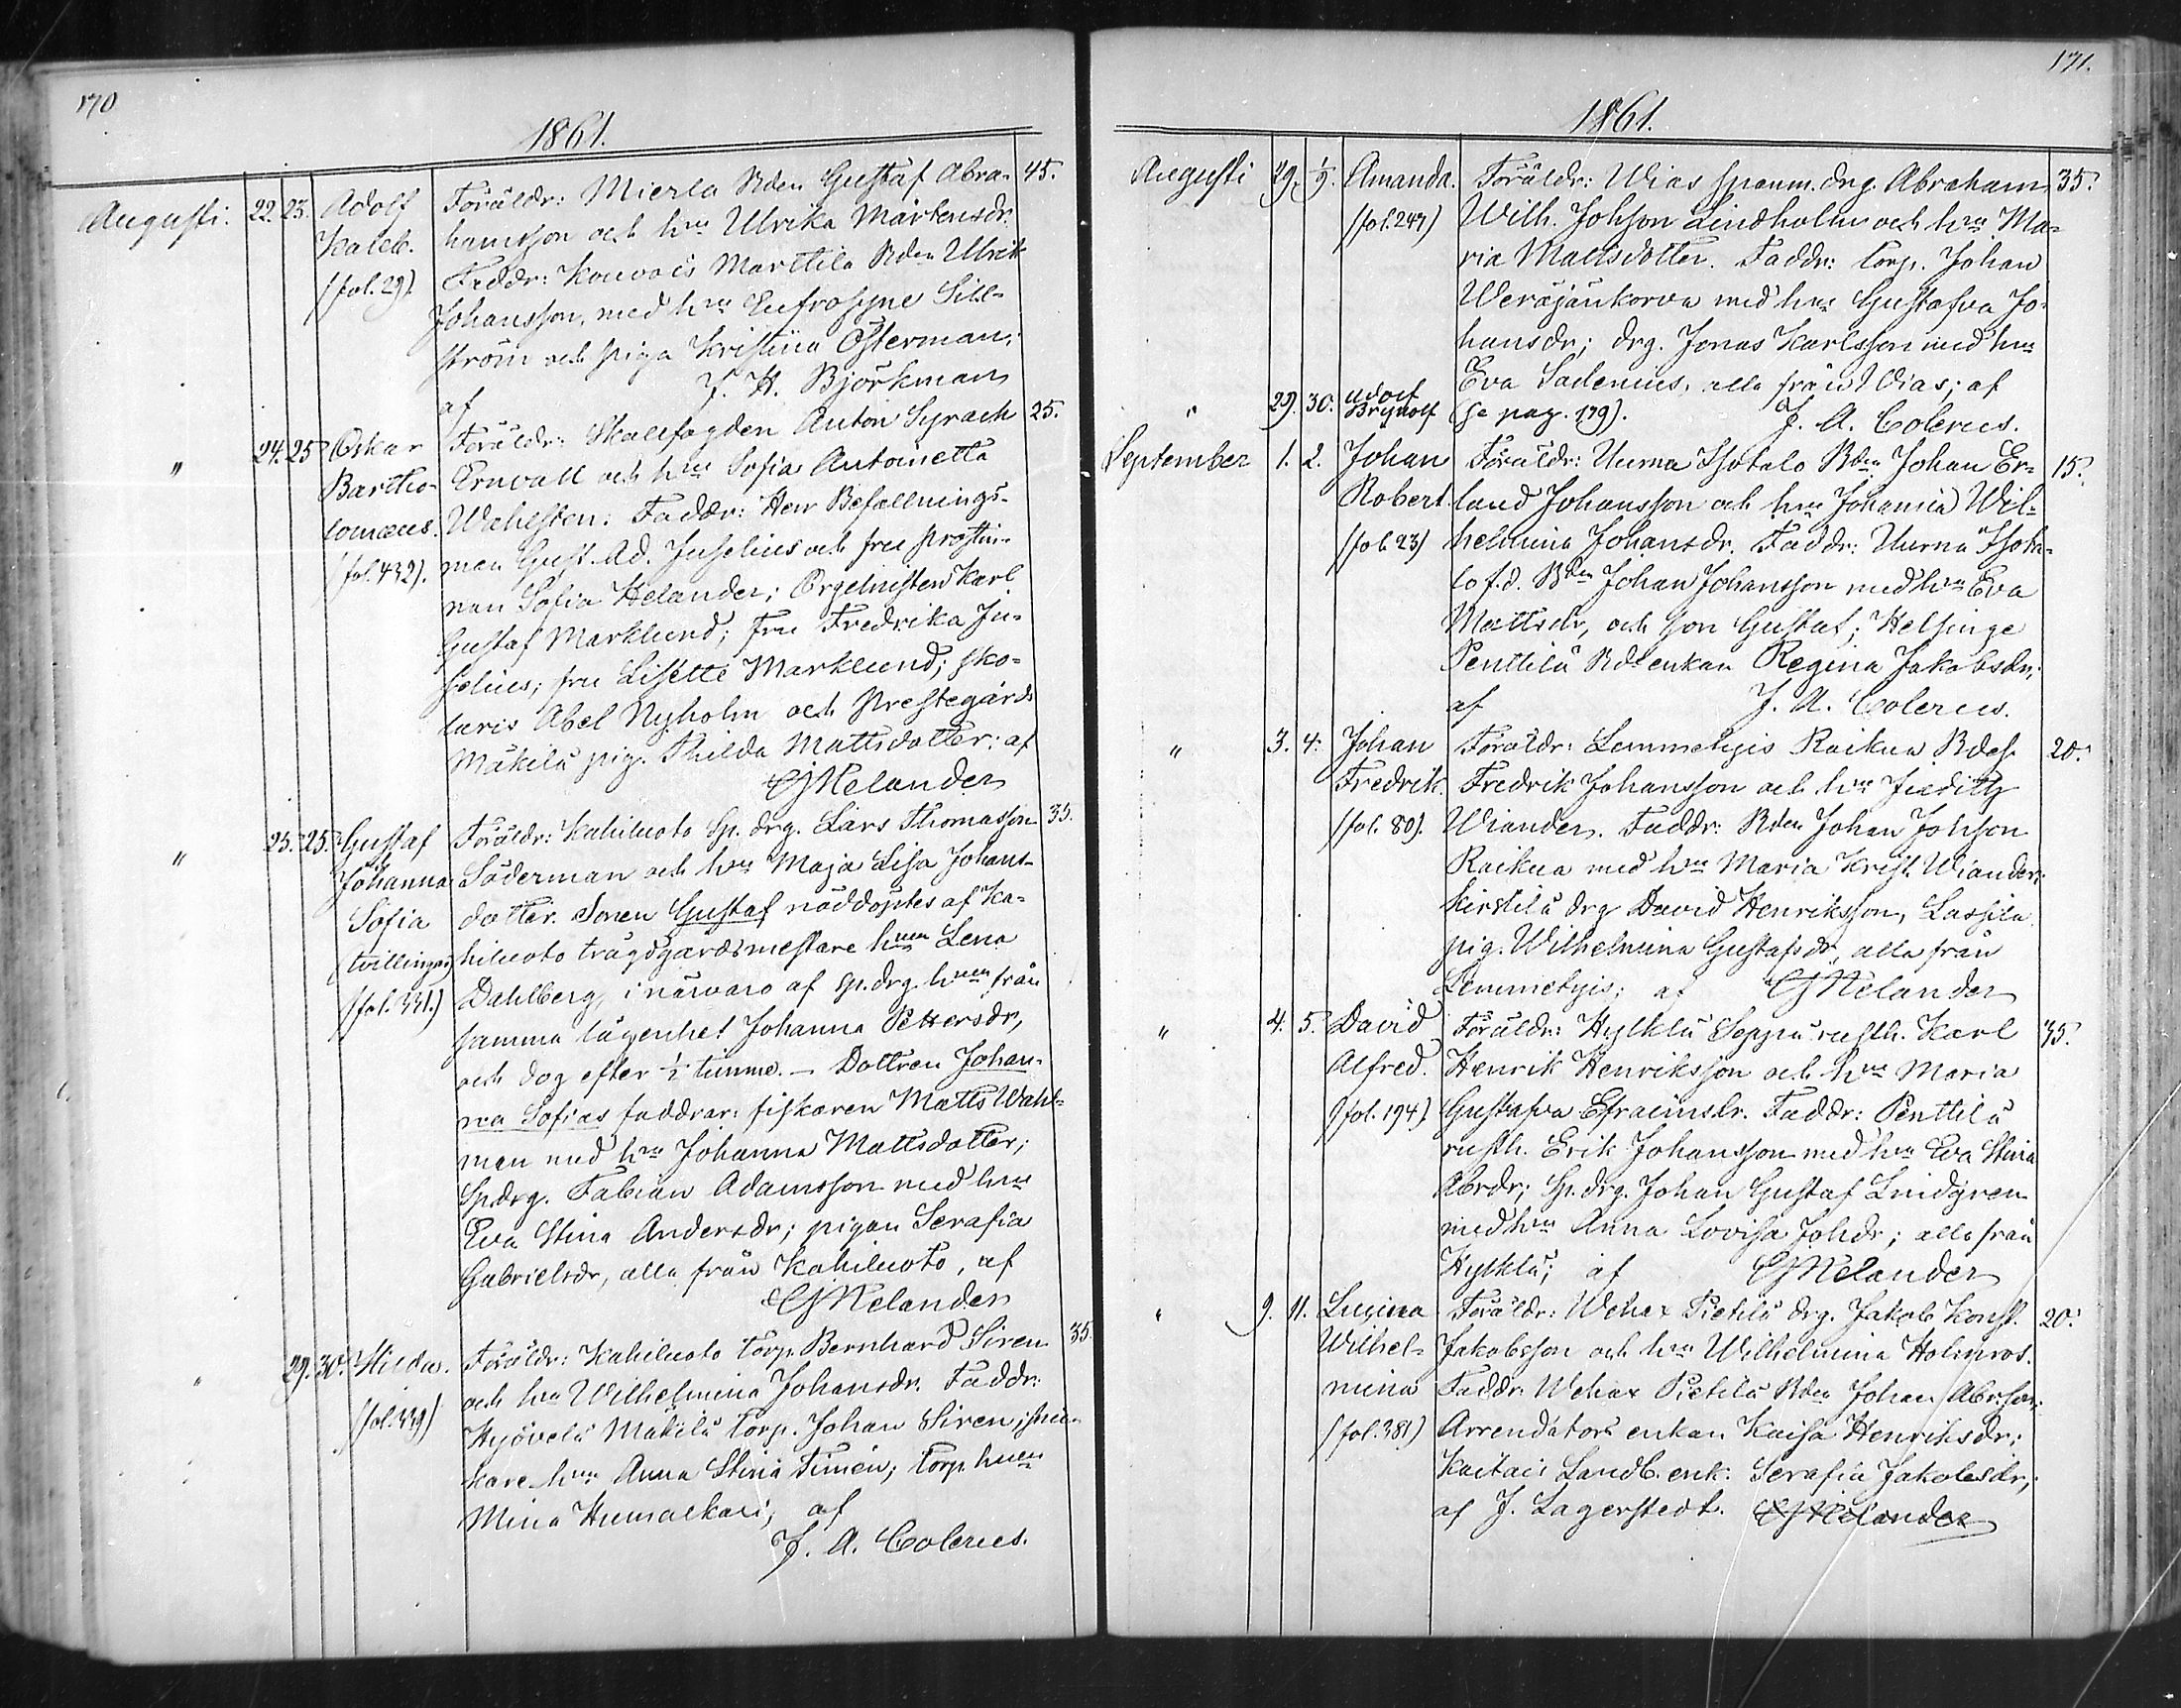 170
1861.
Augusti. 22. 23. Adolf Föräldr: Mierla Rden Gustaf Abra- 45.
Kaleb. hamsson och hru Ulrika Mårtensdr.
(fol. 29). Faddr: Kouvois Marttila Rden Ulrik
Johansson, med hru Eufrosyne Sill-
ström och piga Kristina Österman;
af J. H. Björkman
" 24. 25 Oskar Föräldr: Skallfogden Anton Syrach 25.
Bartho- Ernvall och hru Sofia Antoinetta
lomæus. Wahlsten. Faddr: Herr Befallnings-
(fol. 432). man Gust. Ad. Juselius och fru Prostin-
nan Sofia Helander; Orgelnisten Karl
Gustaf Marklund; fru Fredrika Ju-
selius; fru Lisette Marklund; sko-
laris Abel Nyholm och Prestegårds
Mäkilä pig. Thilda Mattsdotter; af
CJHelander
" 25. 25. Gustaf Föräldr: Kahiluoto Sp. drg. Lars Thomasson 35.
Johanna Söderman och hru Maja Lisa Johans-
Sofia dotter. Sonen Gustaf nöddöptes af Ka-
(tvillingar) hiluoto trägdgårdsmestare hrun Lena
(fol. 331.) Dahlberg, i närvaro af sp. drg. hrun från
samma lägenhet Johanna Pettersdr,
och dog efter ½ timme. – Dottren Johan-
na Sofias faddrar: fiskaren Matts Wahl-
man med hru Johanna Mattsdotter;
Sp.drg. Fabian Adamsson med hru
Eva Stina Andersdr; pigan Serafia
Gabrielsdr, alla från Kahiluoto, af
CJHelander
" 29. 30. Hilda. Föräldr: Kahiluoto Torp. Bernhard Siren 35.
(fol. 339) och hru Wilhelmina Johansdr. Faddr:
Hyövelä Mäkilä Torp. Johan Siren; snic-
kare hru Anna Stina Timen; Torp. hrun
Mina Humalkari; af
J. A. Colerus.
171.
1861.
Augusti 29. 1/9. Amanda. Föräldr: Wias spanm. drg. Abraham 35.
(fol. 247) Wilh. Johsson Lindholm och hru Ma-
ria Mattsdotter. Faddr: Torp. Johan
Weräjänkorva med hru Gustafva Jo-
hansdr; drg. Jonas Karlsson med hru
Eva Sadenius, alla från Wias; af
" 29. 30. Adolf Brynolf (se pag. 179). J. A. Colerus.
September 1. 2. Johan Föräldr: Uurna Isotalo Rden Johan Er- 15.
Robert land Johansson och hru Johanna Wil-
(fol. 23) helmina Johansdr. Faddr: Uurna Isota-
lo f.d. Rden Johan Johansson med hru Eva
Mattsdr, och son Gustaf; Helsinge
Penttilä Rdeenkan Regina Jakobsdr;
af J. A. Colerus.
" 3. 4. Johan Föräldr: Lemmetyis Raikua Rdes. 20.
Fredrik. Fredrik Johansson och hru Judith
(fol. 80). Wiander. Faddr: Rden Johan Johsson
Raikua med hru Maria Krist. Wiander;
Kirstilä drg David Henriksson, Lassila
pig. Wilhelmina Gustafsdr, alla från
Lemmetyis; af CJHelander
" 4. 5. David Föräldr: Hylklä Seppä rusth. Karl 35.
Alfred. Henrik Henriksson och hru Maria
(fol. 194) Gustafva Efraimsdr. Faddr: Penttilä
rusth. Erik Johansson med hru Eva Stina
Abrdr; Sp. drg. Johan Gustaf Lindgren
med hru Anna Lovisa Johdr; alla från
Hylklä; af CJHelander
" 9. 11. Lucina Föräldr: Wehax Pietilä drg. Jakob Konst. 20.
Wilhel- Jakobsson och hru Wilhelmina Holmros.
mina Faddr: Wehax Pietilä Rden Johan Abr.son;
(fol. 381) Arrendators enkan Kaisa Henriksdr;
Kaitais Landb. enk. Serafia Jakobsdr;
af J. Lagerstedt. CJHelander